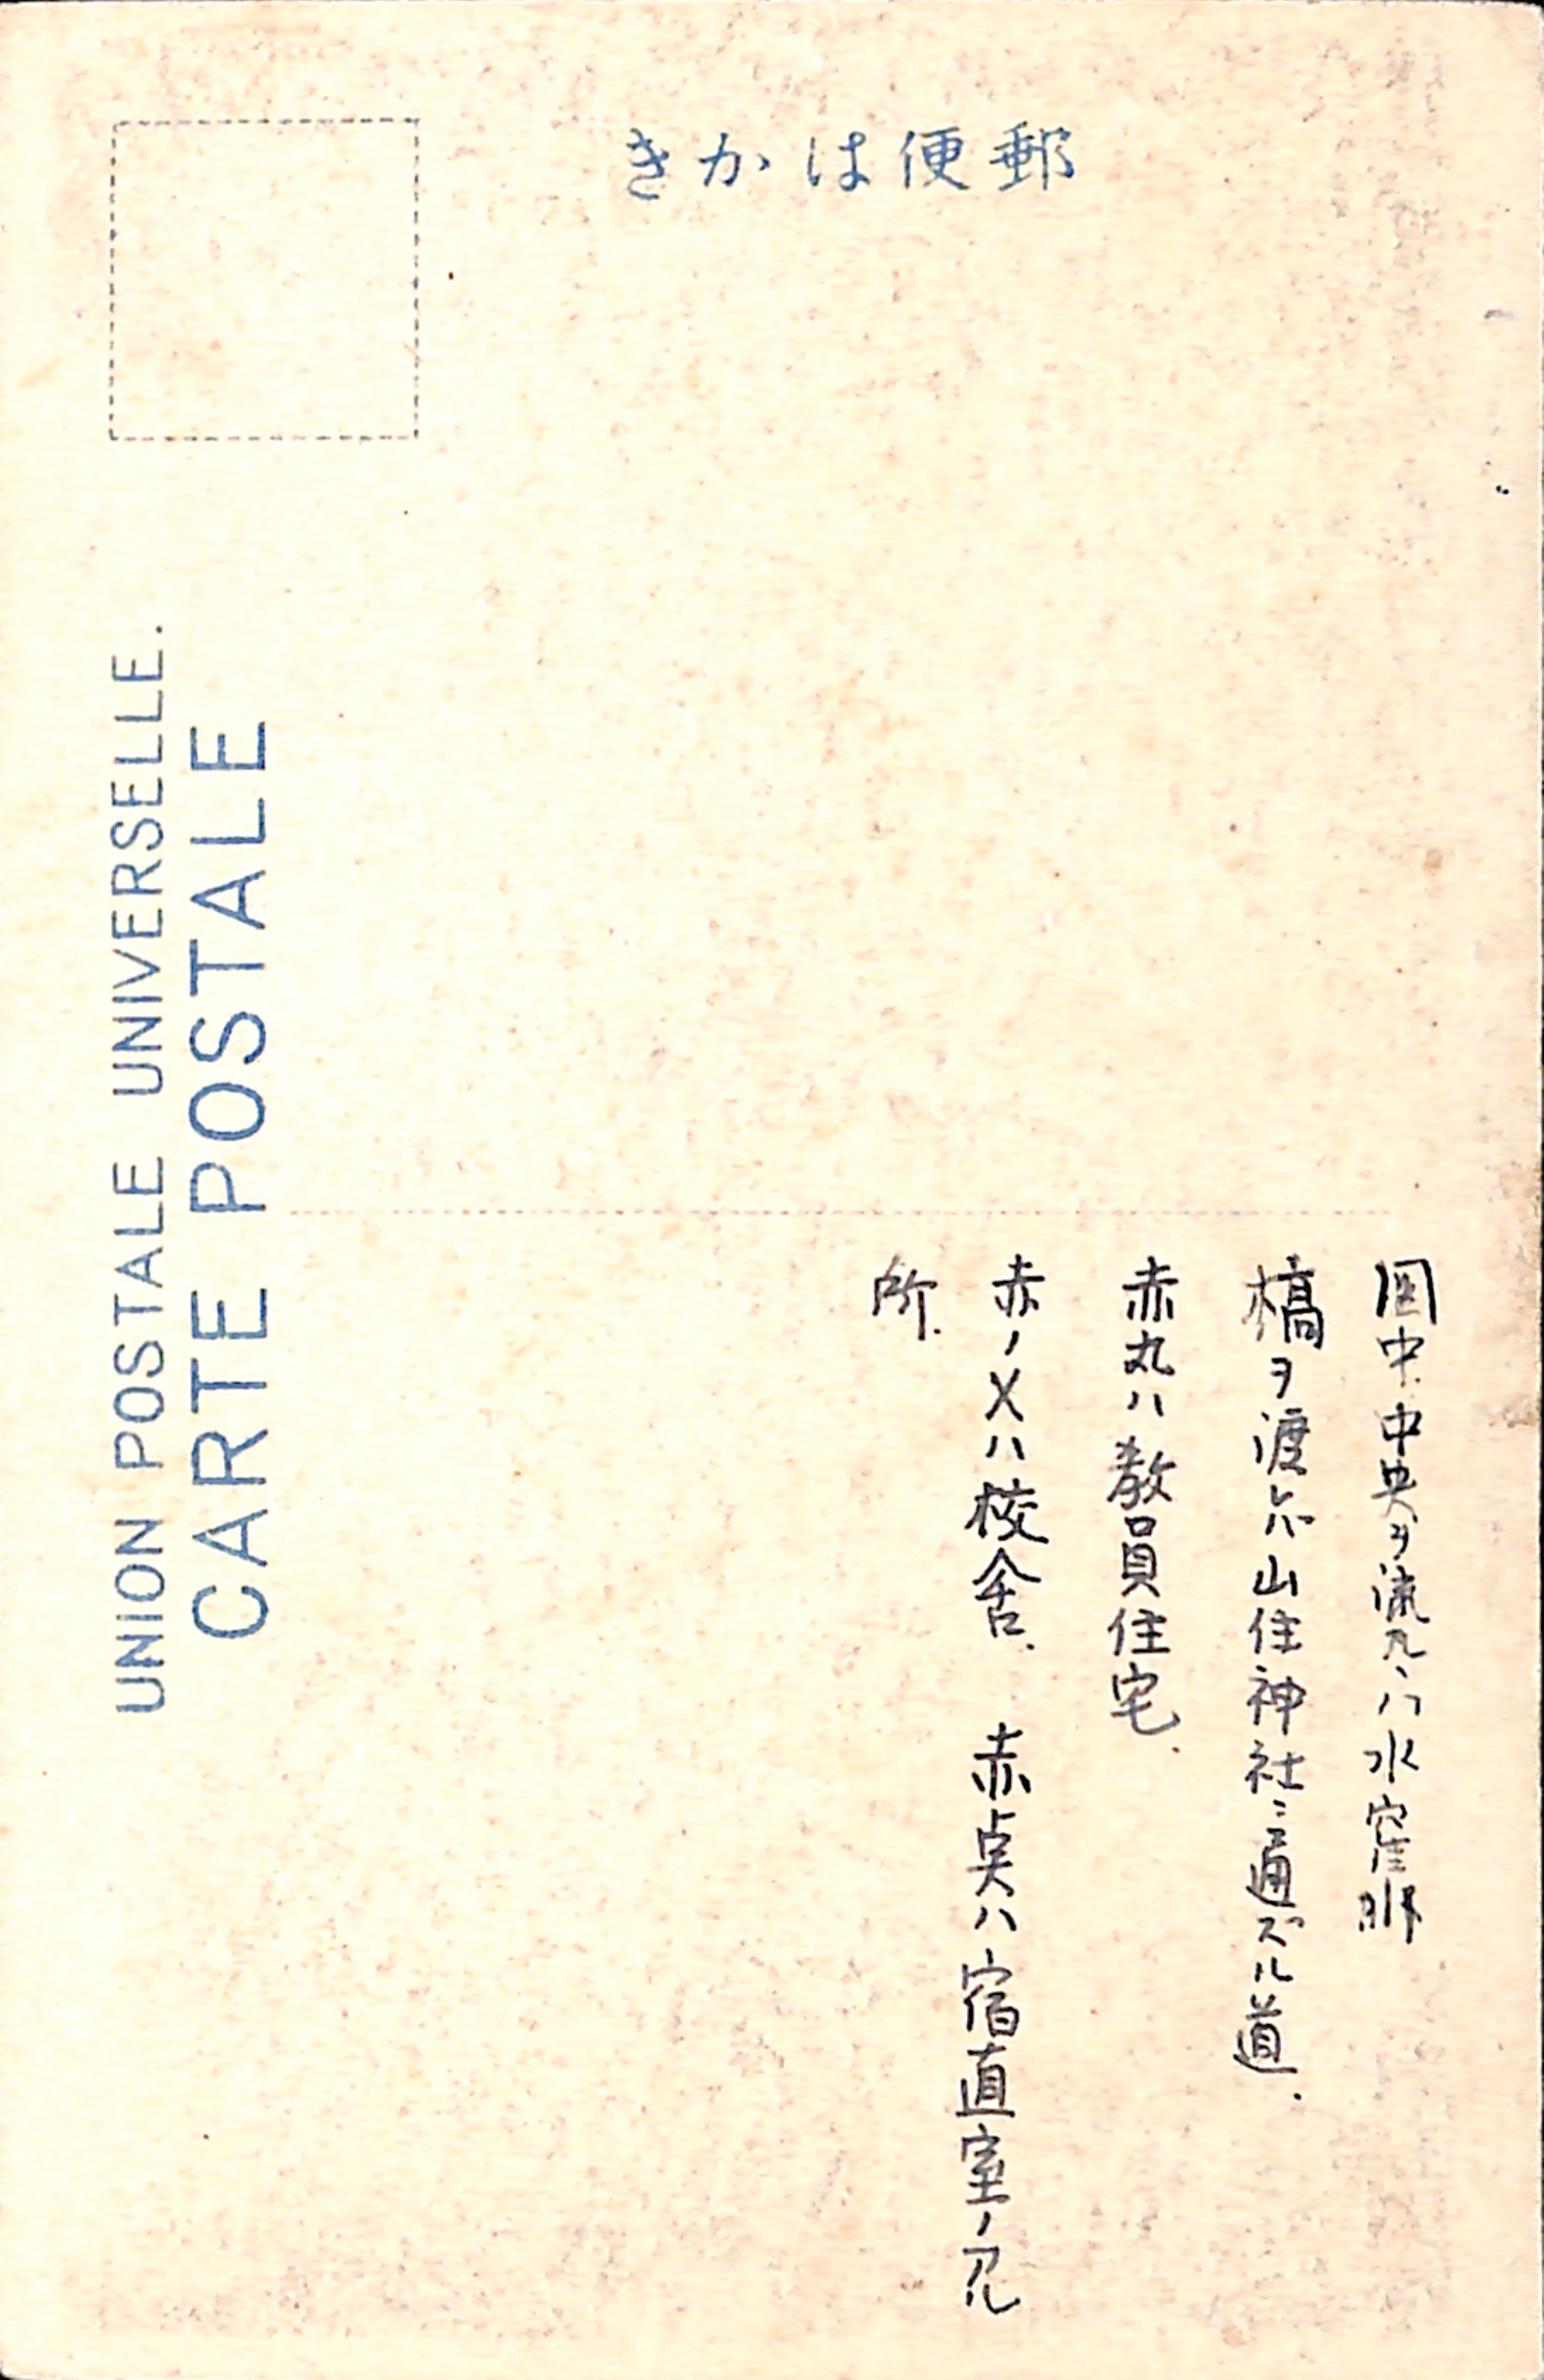 きかは便郵
UNION POSTALE UNIVERSELLE.
CARTE POSTALE
図中、中央ヲ流ルヽハ水窪川
橋ヲ渡レバ山住神社ニ通ズル道.
赤丸ハ教員住宅.
赤ノ×ハ校舎. 赤点ハ宿直室ノアル
所.